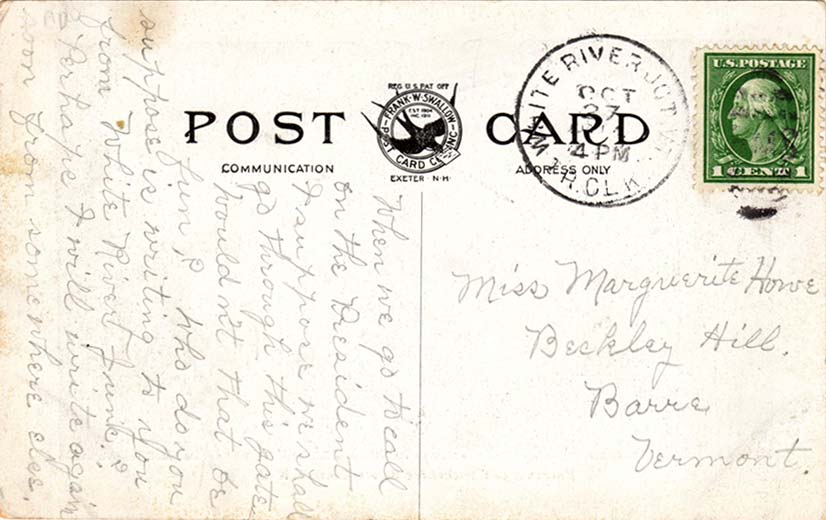 REG. U.S. PAT. OFF
POST CARD
FRANK·W·SWALLOW
POST CARD CO. INC.
EST 1904
INC. 1911
EXETER·N·H·
COMMUNICATION
ADDRESS ONLY
WHITE RIVER JCT. VT.
OCT
27
4 PM
R.CLK.
U.S. POSTAGE
1 CENT 1
When we go to call
on the President
I suppose we shall
go through this gate
Wouldn't that be
fun? Who do you
suppose is writing to you
from White River Junk.?
Perhaps I will write again
soon from somewhere else.
Miss Marguerite Howe
Beckley Hill.
Barre
Vermont.